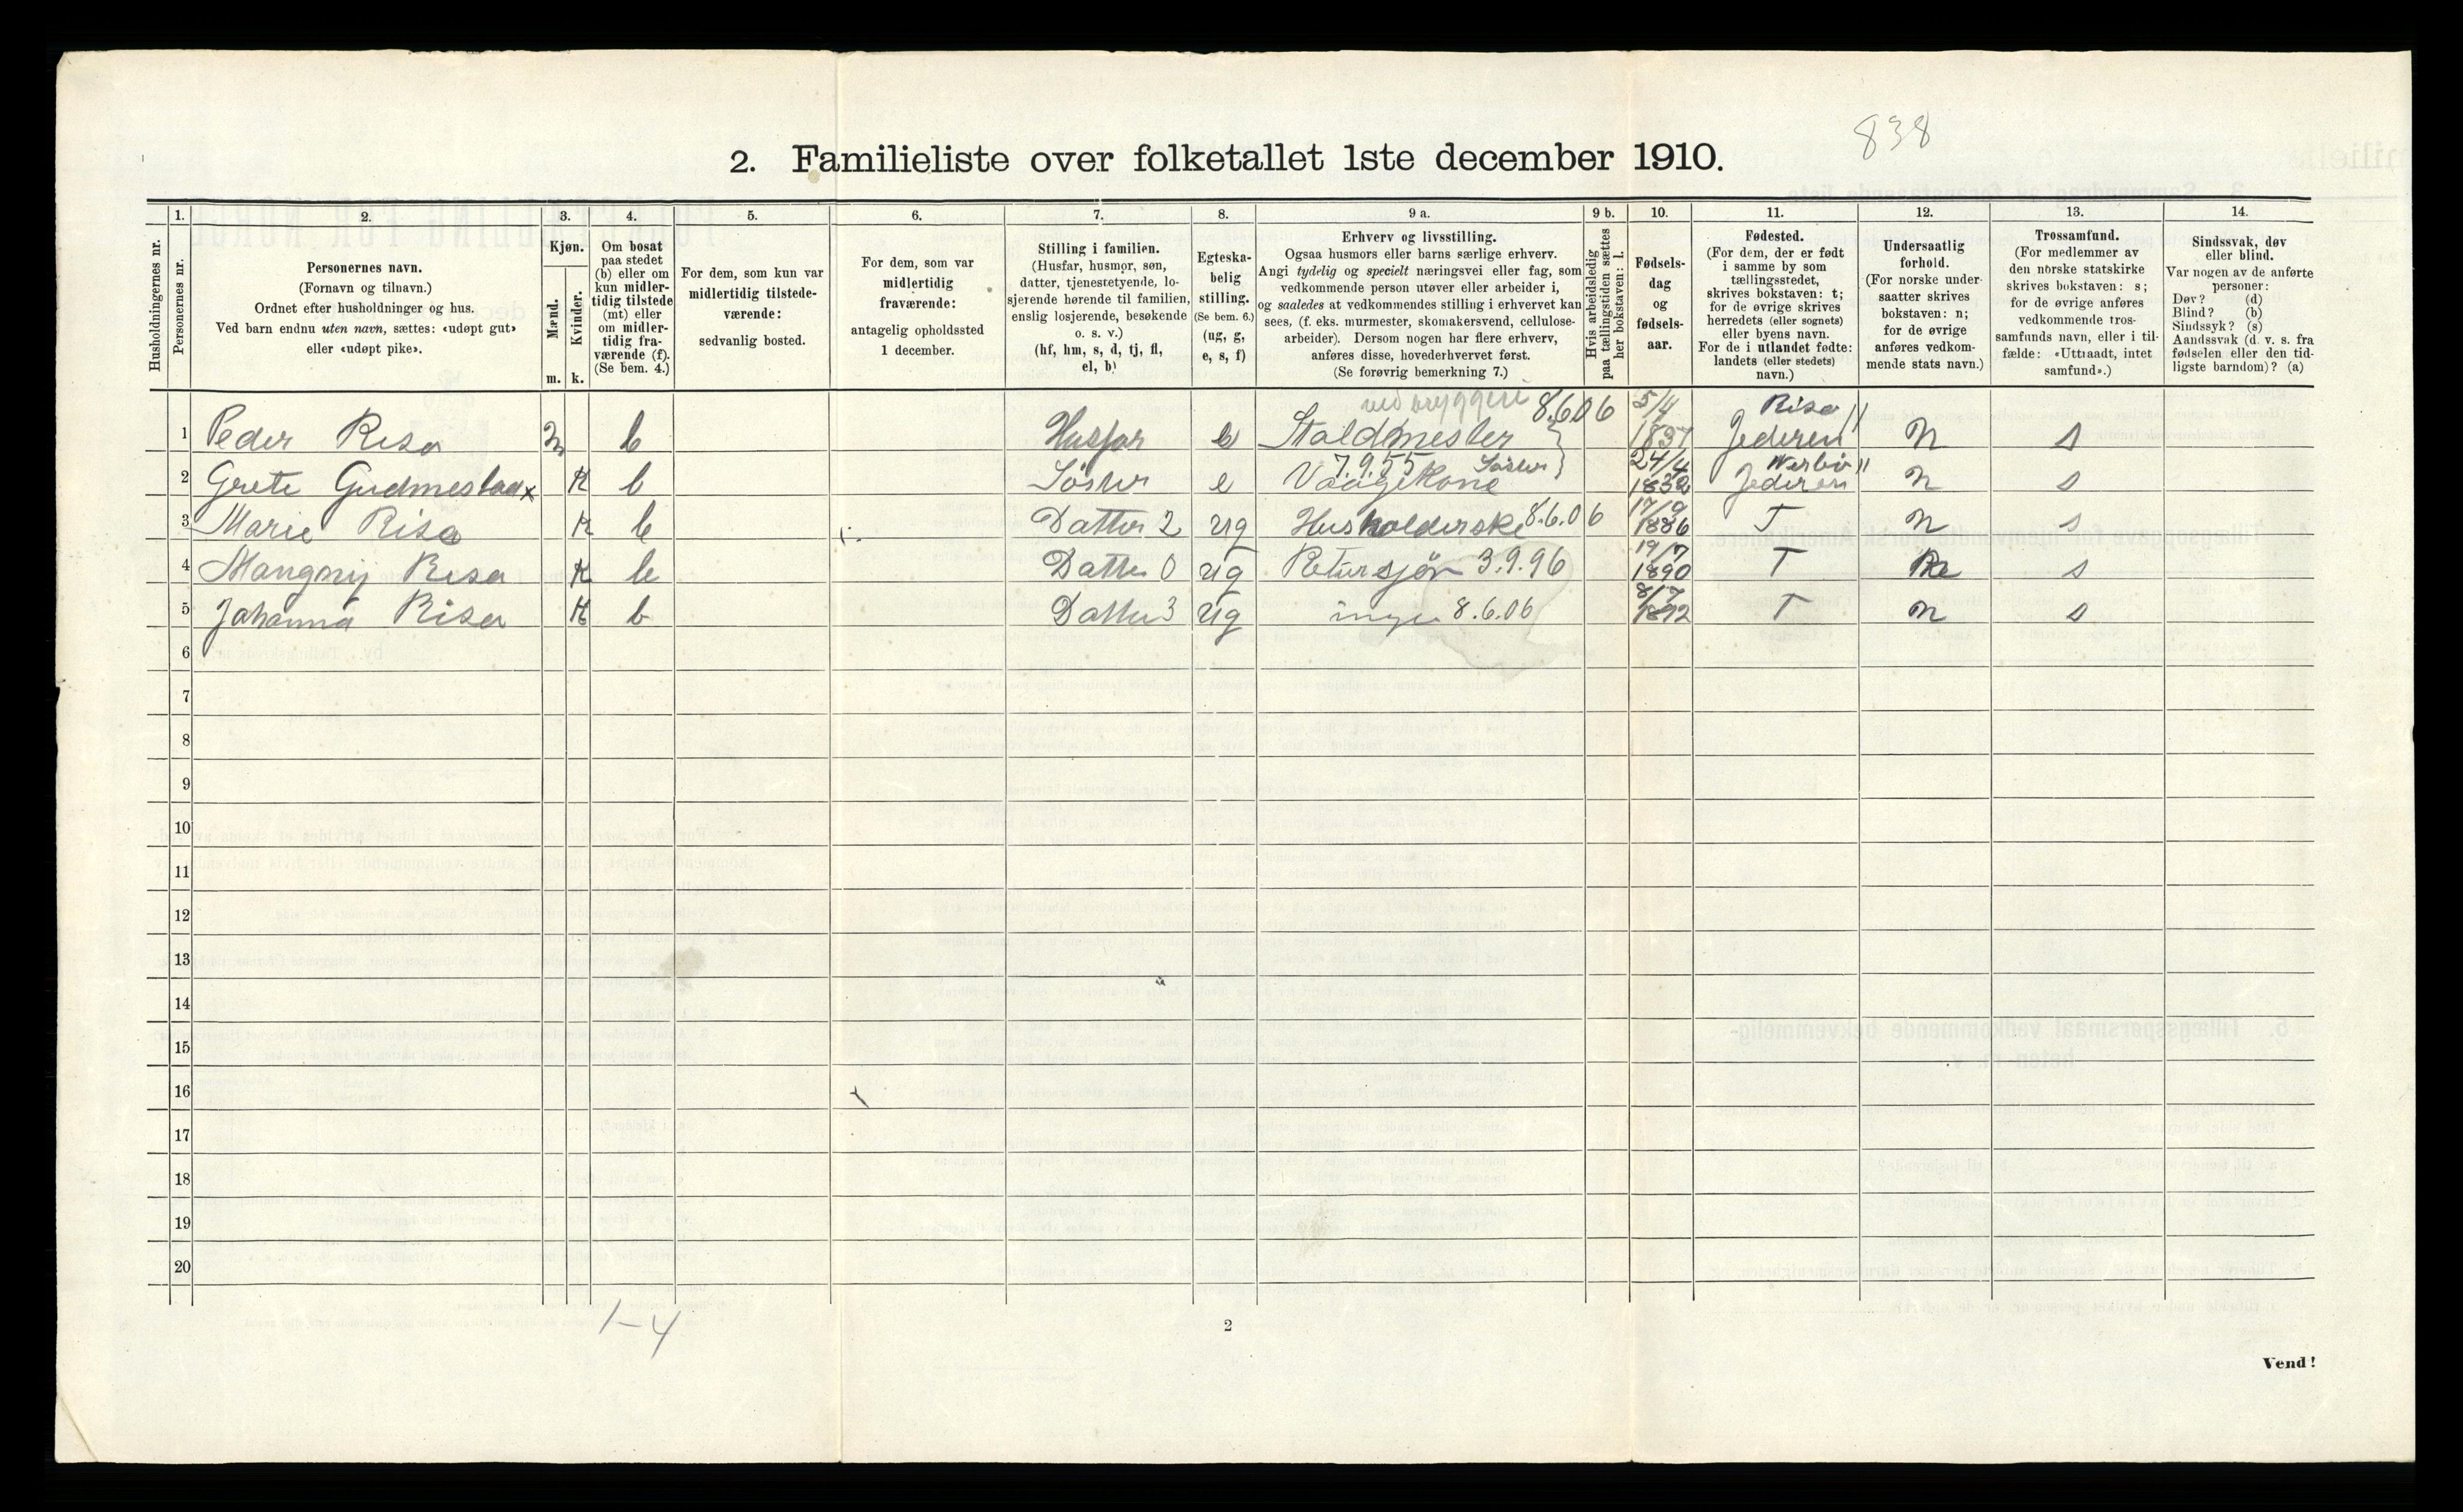 838
2. Familieliste over folketallet 1ste december 1910.
Husholdningernes nr.
1.
Personernes nr.
2.
Personernes navn.
(Fornavn og tilnavn.)
Ordnet efter husholdninger og hus.
Ved barn endnu uten navn, sættes: «udøpt gut»
eller «udøpt pike».
3.
Kjøn.
Mænd.
Kvinder.
m. k.
4.
Om bosat
paa stedet
(b) eller om
kun midler-
tidig tilstede
(mt) eller
om midler-
tidig fra-
værende (f).
(Se bem. 4.)
5.
For dem, som kun var
midlertidig tilstede-
værende:
sedvanlig bosted.
6.
For dem, som var
midlertidig
fraværende:
antagelig opholdssted
1 december.
7.
Stilling i familien.
(Husfar, husmor, søn,
datter, tjenestetyende, lo-
sjerende hørende til familien,
enslig losjerende, besøkende
o. s. v.)
(hf, hm, s, d, tj, fl,
el, b)
8.
Egteska-
belig
stilling.
(Se bem. 6.)
(ug, g,
e, s, f)
9 a.
Erhverv og livsstilling.
Ogsaa husmors eller barns særlige erhverv.
Angi tydelig og specielt næringsvei eller fag, som
vedkommende person utøver eller arbeider i,
og saaledes at vedkommendes stilling i erhvervet kan
sees, (f. eks. murmester, skomakersvend, cellulose-
arbeider). Dersom nogen har flere erhverv,
anføres disse, hovederhvervet først.
(Se forøvrig bemerkning 7.)
9 b.
Hvis arbeidsledig
paa tællingstiden sættes
her bokstaven: l.
10.
Fødsels-
dag
og
fødsels-
aar.
11.
Fødested.
(For dem, der er født
i samme by som
tællingsstedet,
skrives bokstaven: t;
for de øvrige skrives
herredets (eller sognets)
eller byens navn.
For de i utlandet fødte:
landets (eller stedets)
navn.)
12.
Undersaatlig
forhold.
(For norske under-
saatter skrives
bokstaven: n;
for de øvrige
anføres vedkom-
mende stats navn.)
13.
Trossamfund.
(For medlemmer av
den norske statskirke
skrives bokstaven: s;
for de øvrige anføres
vedkommende tros-
samfunds navn, eller i til-
fælde: «Uttraadt, intet
samfund».)
14.
Sindssvak, døv
eller blind.
Var nogen av de anførte
personer:
Døv? (d)
Blind? (b)
Sindssyk? (s)
Aandssvak (d. v. s. fra
fødselen eller den tid-
ligste barndom)? (a)
ved bryggeri 8.606 5/4 Risa
1 Peder Risa m b Husfar e Staldmester 1837 Jederen n s
7.9.55 Søster 24/4
2 Grete x K b Søster e Vaagekone 1832 Jederen n s
17/9
3 Marie Risa K b Datter 2 ug Husholderske 8.6.06 1886 T n s
19/7
4 Mangny Risa K b Datter 0 ug 3.9.96 1890 T s
8/7
5 Johanna Risa K b Datter 3 ug ingen 8.6.06 1892 T n s
6
7
8
9
10
11
12
13
14
15
16
17
18
19
20
1-4
2
Vend!